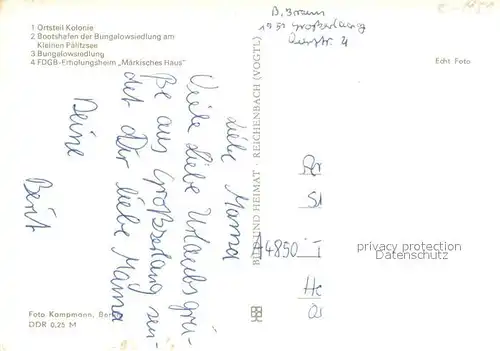 1 Ortsteil Kolonie
2 Bootshafen der Bungalowsiedlung am
Kleinen Pälitzsee
3 Bungalowsiedlung
4 FDGB-Erholungsheim „Märkisches Haus"
B. Braun
1951 Großzerlang
Dorfstr. 4
Echt Foto
Liebe Mama
Viele liebe Urlaubsgrü-
ße aus Großzerlang sen-
det Dir liebe Mama
Deine
Berit
BILD UND HEIMAT · REICHENBACH (VOGTL)
A4850
privacy protection
Datenschutz
Foto Kampmann, Ber
DDR 0,25 M